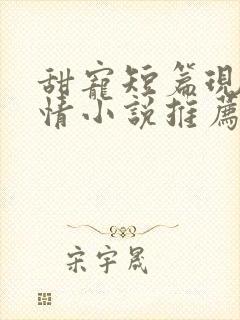 甜寵短篇現
情小說推薦
宋宇晟